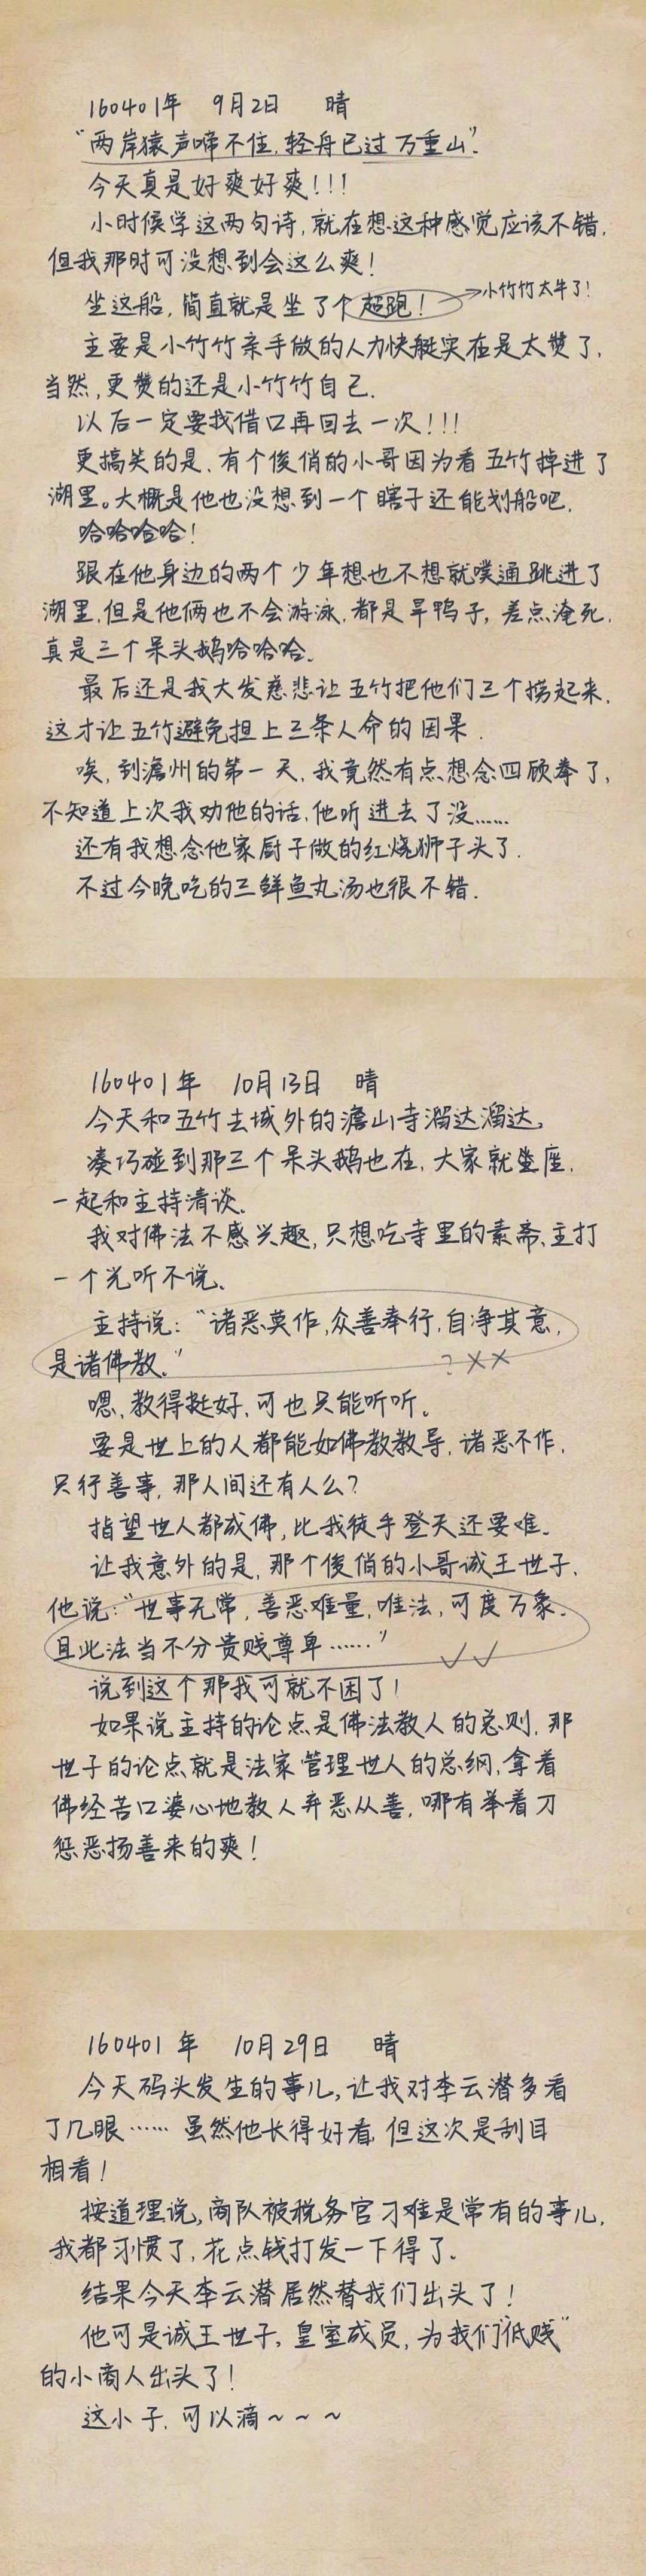 160401年 9月2日 晴
“两岸猿声啼不住,轻舟已过万重山”.
今天真是好爽好爽!!!
小时候学这两句诗,就在想这种感觉应该不错,
但我那时可没想到会这么爽!
坐这船,简直就是坐了个超跑! →小竹竹太牛了!
主要是小竹竹亲手做的人力快艇实在是太赞了,
当然,更赞的还是小竹竹自己.
以后一定要找借口再回去一次!!!
更搞笑的是,有个俊俏的小哥因为看五竹掉进了
湖里。大概是他也没想到一个瞎子还能划船吧.
哈哈哈哈!
跟在他身边的两个少年想也不想就噗通跳进了
湖里,但是他俩也不会游泳,都是旱鸭子,差点淹死,
真是三个呆头鹅哈哈哈.
最后还是我大发慈悲让五竹把他们三个捞起来,
这才让五竹避免担上三条人命的因果.
唉,到澹州的第一天,我竟然有点想念四顾拳了,
不知道上次我劝他的话,他听进去了没……
还有我想念他家厨子做的红烧狮子头了.
不过今晚吃的三鲜鱼丸汤也很不错.
160401年 10月13日 晴
今天和五竹去城外的澹山寺溜达溜达,
凑巧碰到那三个呆头鹅也在,大家就坐座,
一起和主持清谈、
我对佛法不感兴趣,只想吃寺里的素斋、主打
一个光听不说、
主持说:“诸恶莫作,众善奉行,自净其意,
是诸佛教.” ?××
嗯,教得挺好,可也只能听听。
要是世上的人都能如佛教教导,诸恶不作,
只行善事,那人间还有人么?
指望世人都成佛,比我徒手登天还要难.
让我意外的是,那个俊俏的小哥诚王世子,
他说:“世事无常,善恶难量,唯法,可度万象.
且此法当不分贵贱尊卑……” ✓✓
说到这个那我可就不困了!
如果说主持的论点是佛法教人的总则,那
世子的论点就是法家管理世人的总纲,拿着
佛经苦口婆心地教人弃恶从善,哪有举着刀
惩恶扬善来的爽!
160401年 10月29日 晴
今天码头发生的事儿,让我对李云潜多看
了几眼……虽然他长得好看,但这次是刮目
相看!
按道理说,商队被税务官刁难是常有的事儿,
我都习惯了,花点钱打发一下得了.
结果今天李云潜居然替我们出头了!
他可是诚王世子,皇室成员,为我们“低贱”
的小商人出头了!
这小子,可以滴~~~